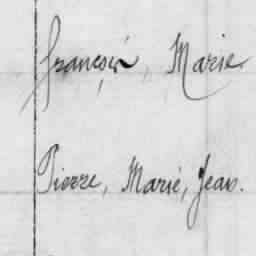 françois, Marie
Pierre, Marie, Jean.